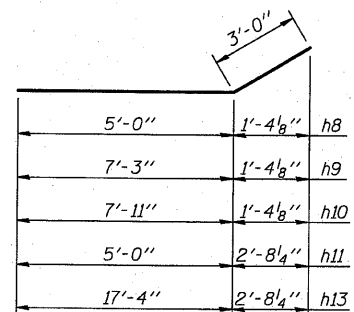 3'-0"
5'-0" 1'-4⅛" h8
7'-3" 1'-4⅛" h9
7'-11" 1'-4⅛" h10
5'-0" 2'-8¼" h11
17'-4" 2'-8¼" h13